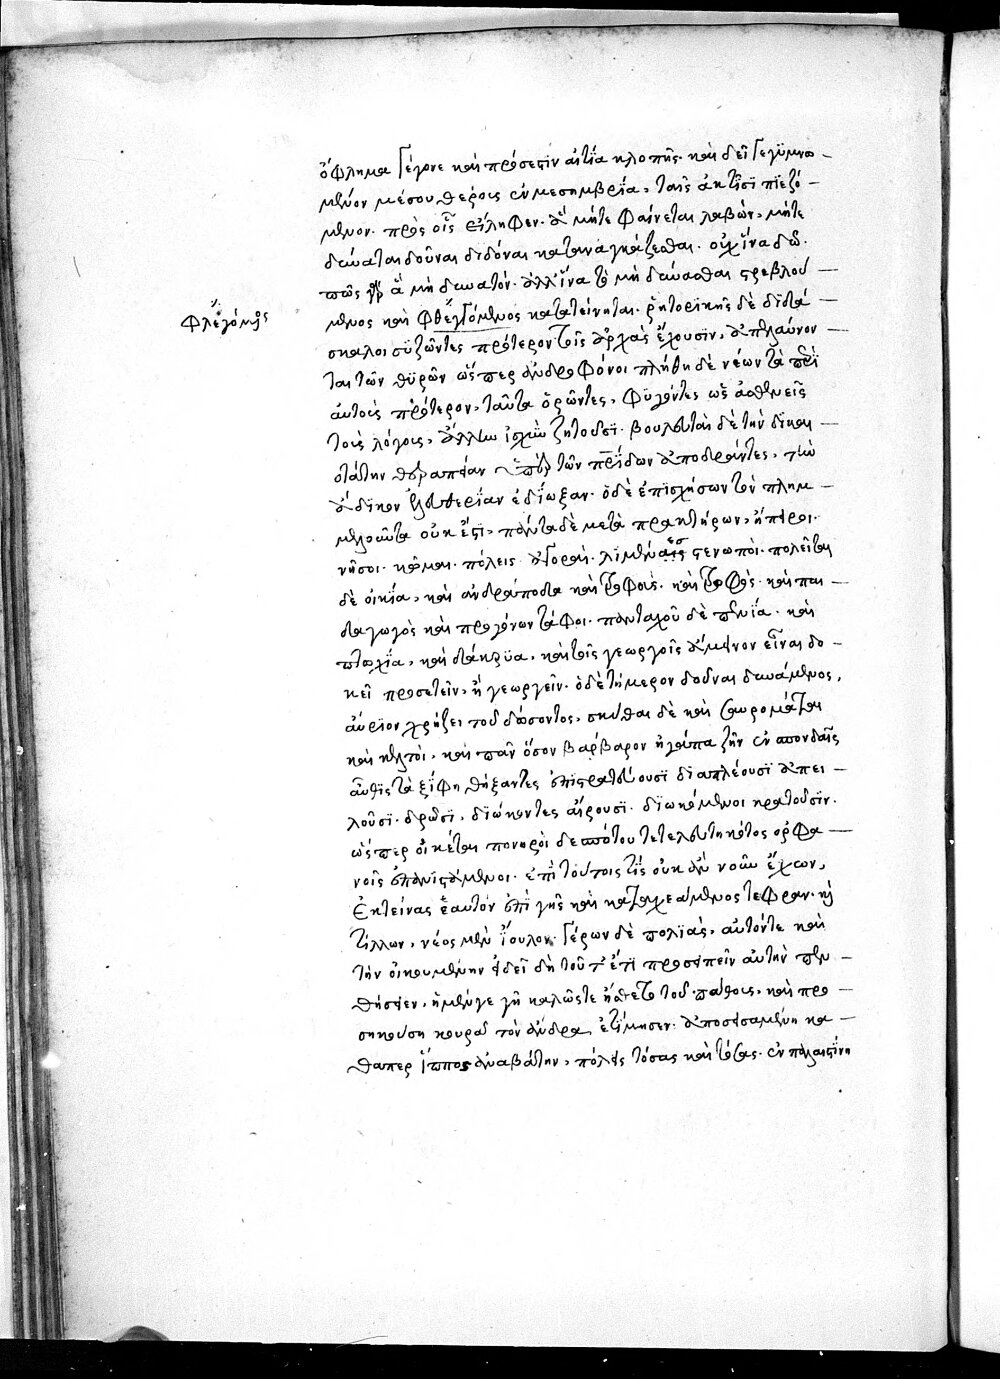 ὄφλημα γέγονε καὶ πρόσεστιν αἰτία κλοπῆς· καὶ δεῖ γεγυμνω
μένον μέσου θέρους ἐν μεσημβρία, ταῖς ἀκτῖσι πιεζό
μενον. πρὸς οἷς εἴληφεν· ἃ μήτε φαίνεται λαβὼν, μήτε
δύναται δοῦναι διδόναι καταναγκάζεσθαι. οὐχ ἵνα δῶ.
πῶς γὰρ ἃ μὴ δυνατόν· ἀλλ' ἵνα τῶ μὴ δύνασθαι στρεβλού
μενος καὶ φθεγγόμενος κατατείνηται. ῥητορικῆς δὲ διδά
φλεγόμενος
σκαλοι συζῶντες πρότερον τοῖς ἀρχὰς ἔχουσιν, ἀπελαύνον
ται τῶν θυρῶν ὥσπερ ἀνδροφόνοι πλήθη δὲ νέων τὰ περὶ
αὐτοὺς πρότερον, ταῦτα ὁρῶντες, φυγόντες ὡς ἀσθενεῖς
τοὺς λόγους, ἄλλην ἰσχὺν ζητοῦσι. βουλευταὶ δὲ τὴν δικαι
οτάτην θεραπείαν ὑπὲρ τῶν πατρίδων ἀποδράντες, τὴν
ἄδικον ἐλευθερίαν ἐδίωξαν. ὁ δὲ ἐπισχήσων τὸν πλημ
μελοῦντα οὐκ ἔστι, πάντα δὲ μετὰ πρακτήρων, ἤπειροι.
νῆσοι. κῶμαι. πόλεις ἀγοραὶ. λιμένες στενωποὶ. πωλεῖται
δὲ οἰκία, καὶ ἀνδράποδα καὶ τροφεὺς. καὶ τροφὸς. καὶ παι
δαγωγὸς καὶ προγόνων τάφοι. πανταχοῦ δὲ πενία. καὶ
πτωχεία, καὶ δάκρυα, καὶ τοῖς γεωργοῖς ἄμεινον εἶναι δο
κεῖ προσαιτεῖν, ἢ γεωργεῖν. ὁ δὲ τήμερον δοῦναι δυνάμενος,
αὔριον χρήζει τοῦ δώσοντος, σκύθαι δὲ καὶ σαυρομάται
καὶ κελτοὶ, καὶ πᾶν ὅσον βάρβαρον ἠγάπα ζῆν ἐν σπονδαῖς
αὖθις τὰ ξίφη θήξαντες ἐπιστρατεύουσι διαπλέουσι ἀπει
λοῦσι. δρῶσι, διώκοντες αἴρουσι. διωκόμενοι κρατοῦσιν.
ὥσπερ οἰκέται πονηροὶ δεσπότου τετελευτηκότος ὀρφα
νοῖς ἐπανιστάμενοι. ἐπὶ τούτοις τίς οὐκ ἂν νοῦν ἔχων,
ἐκτείνας ἑαυτὸν ἐπὶ γῆς καὶ καταχεάμενος τέφραν. καὶ
τίλλων, νέος μὲν ἴουλον. γέρων δὲ πολιὰς, αὐτόν τε καὶ
τὴν οἰκουμένην εἰ δεῖ δὴ τοῦτ' ἔτι προσειπεῖν αὐτὴν πεν
θήσειεν, ἡ μέν γε γῆ καλῶς τε ἤσθετο τοῦ πάθους, καὶ προ
σηκούση κουρᾶ τὸν ἄνδρα ἐτίμησεν. ἀποσεισαμένη κα
θαπερ ἵππος ἀναβάτην, πόλεις τόσας καὶ τόσας. ἐν παλαιστίνη